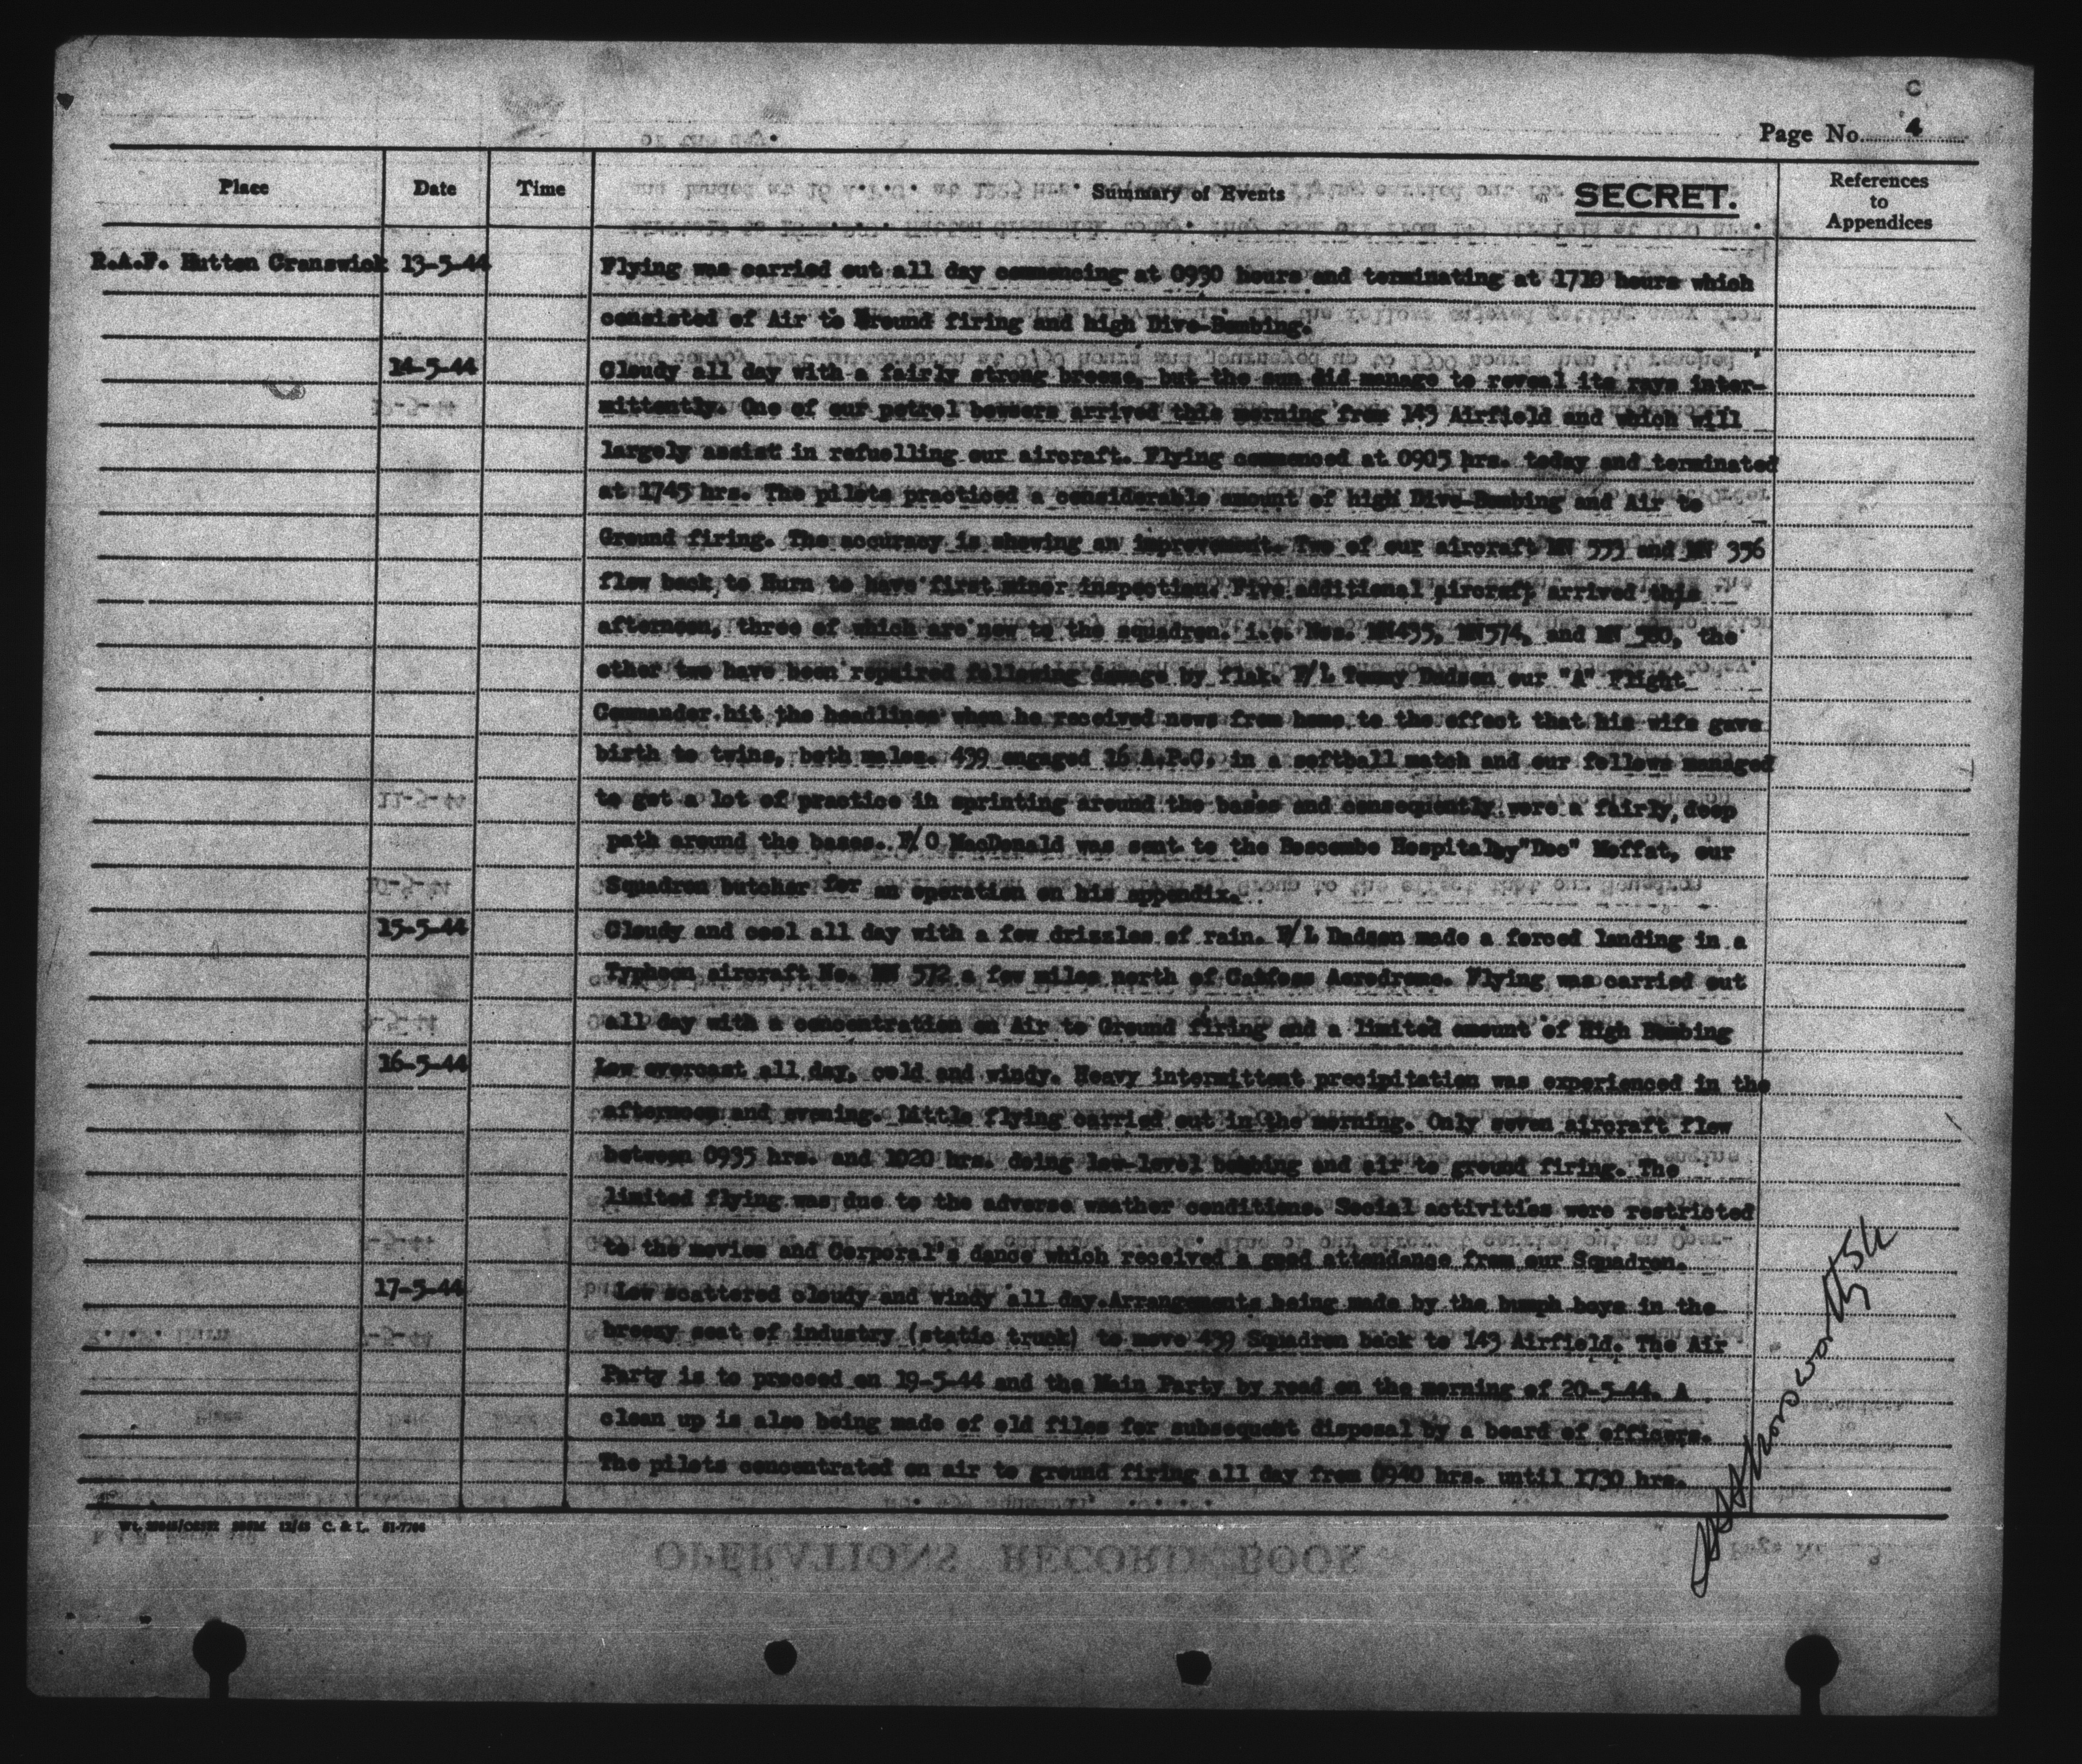 C
Page No. 4
Place Date Time Summary of Events SECRET. References to Appendices
R.A.F. Hutton Cranswick 13-5-44 Flying was carried out all day commencing at 0930 hours and terminating at 1710 hours which
consisted of Air to Ground firing and high Dive-Bombing.
14-5-44 Cloudy all day with a fairly strong breeze, but the sun did manage to reveal its rays inter-
mittently. One of our petrol bowsers arrived this morning from 143 Airfield and which will
largely assist in refuelling our aircraft. Flying commenced at 0905 hrs. today and terminated
at 1745 hrs. The pilots practiced a considerable amount of high Dive-Bombing and Air to
Ground firing. The accuracy is showing an improvement. Two of our aircraft MN 553 and MN 356
flew back to Hurn to have first minor inspection. Five additional aircraft arrived this
afternoon, three of which are new to the squadron. i.e. Nos. MN435, MN574, and MN 580, the
other two have been repaired following damage by flak. F/L Tommy Dadson our "A" Flight
Commander hit the headlines when he received news from home to the effect that his wife gave
birth to twins, both males. 439 engaged 16 A.P.C. in a softball match and our fellows managed
to get a lot of practice in sprinting around the bases and consequently wore a fairly, deep
path around the bases. F/O MacDonald was sent to the Boscombe Hospital by "Doc" Moffat, our
Squadron butcher for an operation on his appendix.
15-5-44 Cloudy and cool all day with a few drizzles of rain. F/L Dadson made a forced landing in a
Typhoon aircraft No. MN 572 a few miles north of Catfoss Aerodrome. Flying was carried out
all day with a concentration on Air to Ground firing and a limited amount of High Bombing
16-5-44 Low overcast all day, cold and windy. Heavy intermittent precipitation was experienced in the
afternoon and evening. Little flying carried out in the morning. Only seven aircraft flew
between 0935 hrs. and 1020 hrs. doing low-level bombing and air to ground firing. The
limited flying was due to the adverse weather conditions. Social activities were restricted
to the movies and Corporal's dance which received a good attendance from our Squadron.
17-5-44 Low scattered cloudy and windy all day. Arrangements being made by the bumph boys in the
breezy seat of industry (static truck) to move 439 Squadron back to 143 Airfield. The Air
Party is to proceed on 19-5-44 and the Main Party by road on the morning of 20-5-44. A
clean up is also being made of old files for subsequent disposal by a board of officers.
The pilots concentrated on air to ground firing all day from 0940 hrs. until 1730 hrs.
C. & L.
OPERATIONS RECORD BOOK